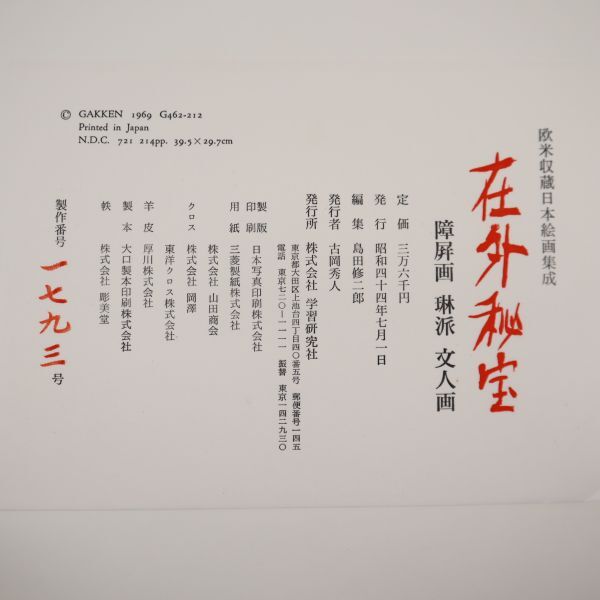 欧米収蔵日本絵画集成
在外秘宝
障屏画 琳派 文人画
定価 三万六千円
発行 昭和四十四年七月一日
編集 島田修二郎
発行者 古岡秀人
発行所 株式会社 学習研究社
東京都大田区上池台四丁目四〇番五号 郵便番号一四五
電話 東京七二〇―一一一一 振替 東京一四二九三〇
製版
印刷 日本写真印刷株式会社
用紙 三菱製紙株式会社
株式会社 山田商会
クロス 株式会社 岡澤
東洋クロス株式会社
羊皮 厚川株式会社
製本 大口製本印刷株式会社
帙 株式会社 彫美堂
製作番号 一七九三号
© GAKKEN 1969 G462-212
Printed in Japan
N.D.C. 721 214pp. 39.5×29.7cm